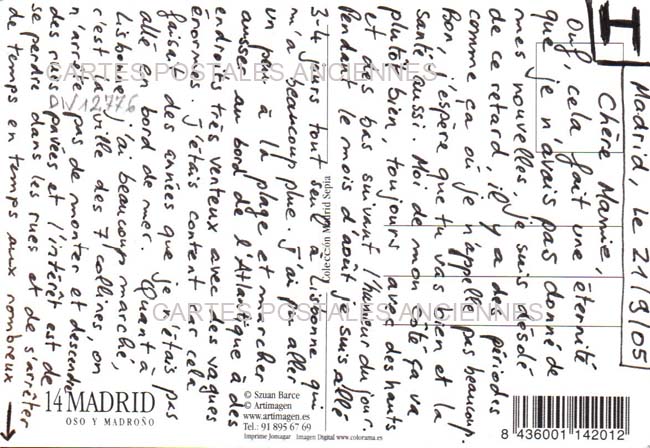 I
Madrid, le 21/9/05
Chère Mamie,
Ouf, cela fait une éternité
que je n'avais pas donné de
mes nouvelles. Je suis désolé
de ce retard il y a des périodes
comme ça où je n'appelle pas beaucoup.
Bon, j'espère que tu vas bien et la
santé aussi. Moi de mon côté ça va
plutôt bien, toujours avec des hauts
et des bas suivant l'humeur du jour.
Pendant le mois d'août je suis allé
3-4 jours tout seul à Lisbonne qui
m'a beaucoup plue. J'ai pu aller
un peu à la plage et marcher
aussi au bord de l'Atlantique à des
endroits très venteux avec des vagues
énormes. J'étais content car cela
faisait des années que je n'étais pas
allé en bord de mer. Quant à
Lisbonne j'ai beaucoup marché,
c'est la ville des 7 collines, on
n'arrête pas de monter et descendre
des rues pavées et l'intérêt est de
se perdre dans les rues et de s'arrêter
de temps en temps aux nombreux →
DIV12776
CARTES POSTALES ANCIENNES
CARTES POSTALES ANCIENNES
Colección Madrid Sepia
14 MADRID
OSO Y MADROÑO
© Szuan Barce
© Artimagen
www.artimagen.es
Tel.: 91 895 67 69
Imprime Jomagar Imagen Digital www.colorama.es
8 436001 142012